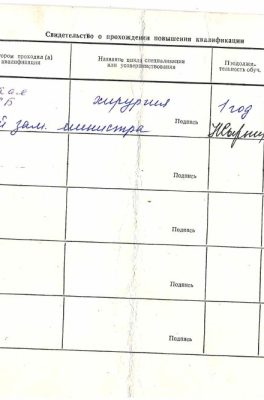 Свидетельство о прохождении повышения квалификации
тором проходил (а) квалификации
Название цикла специализации или усовершенствования
Продолжительность обуч.
хирургия
1 год
й зам. министра
Подпись
Подпись
Подпись
Подпись
Подпись